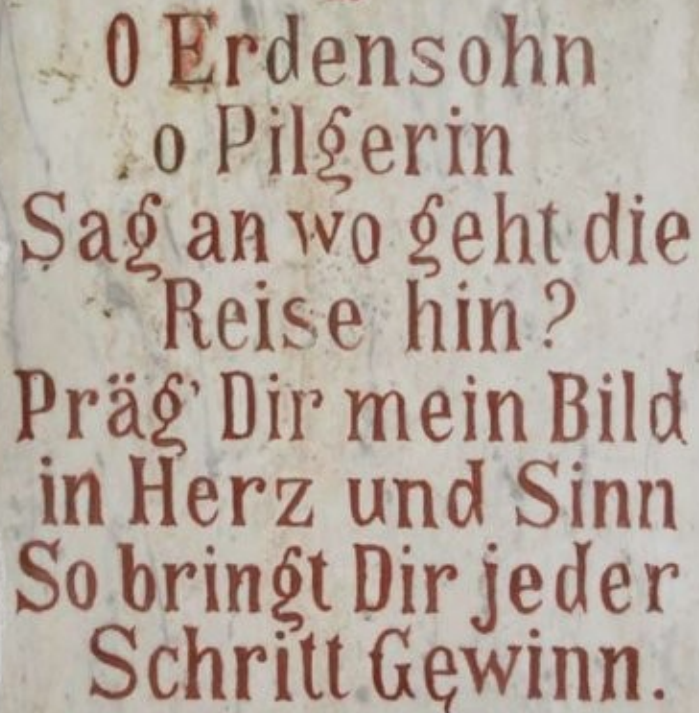 O Erdensohn
o Pilgerin
Sag an wo geht die
Reise hin?
Präg' Dir mein Bild
in Herz und Sinn
So bringt Dir jeder
Schritt Gewinn.